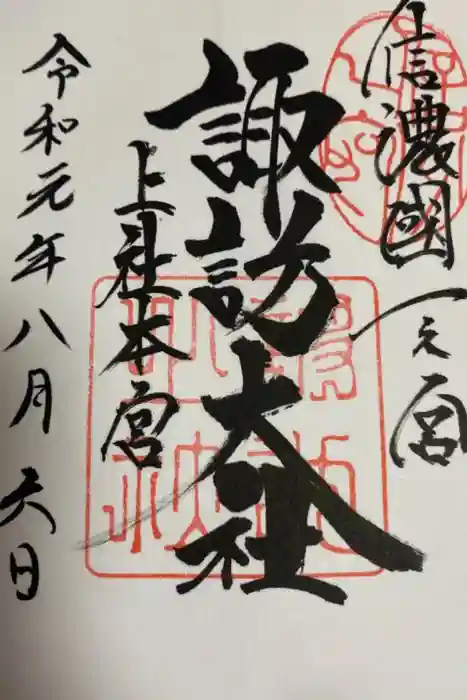 信濃國一之宮
諏訪大社
上社本宮
令和元年八月六日